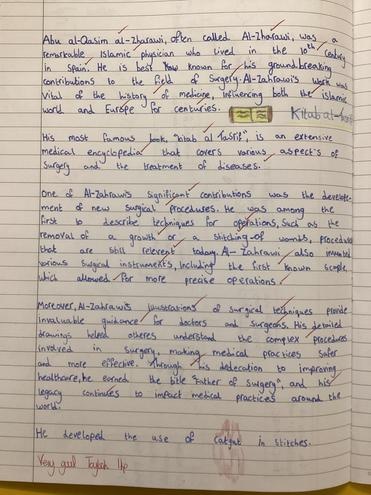 Abu al-Qasim al-zharawi, often called Al-Zharawi, was a
remarkable Islamic physician who lived in the 10th Century
in Spain. He is best known for his groundbreaking
contributions to the field of Surgery. Al-Zahrawi's work was
Vital of the history of medicine, influencing both the islamic
world and Europe for centuries.
Kitab al-
His most famous book, "kitab al Tasrif", is an extensive
medical encyclopedia that covers various aspect's of
Surgery and the treatment of diseases.
One of Al-Zahrawi's Significant contributions was the develope-
ment of new surgical procedures. He was among the
first to describe techniques for operations, Such as the
removal of a growth or a stitching of wombs, procedures
that are still relevent today. Al-Zahrawi also invented
various surgical instruments, including the first known scaple,
which allowed for more precise operations.
Moreover, Al-Zahrawi's illustrations of surgical techniques provide
invaluable guidance for doctors and surgeons. His detailed
drawings helped otheres understand the complex procedures
involved in Surgery, making medical practices safer
and more effective. Through his dedecation to improving
healthcare, he earned the title "Father of Surgery", and his
legacy continues to impact medical practices around the
world.
He developed the use of Catgut in stitches.
Very good